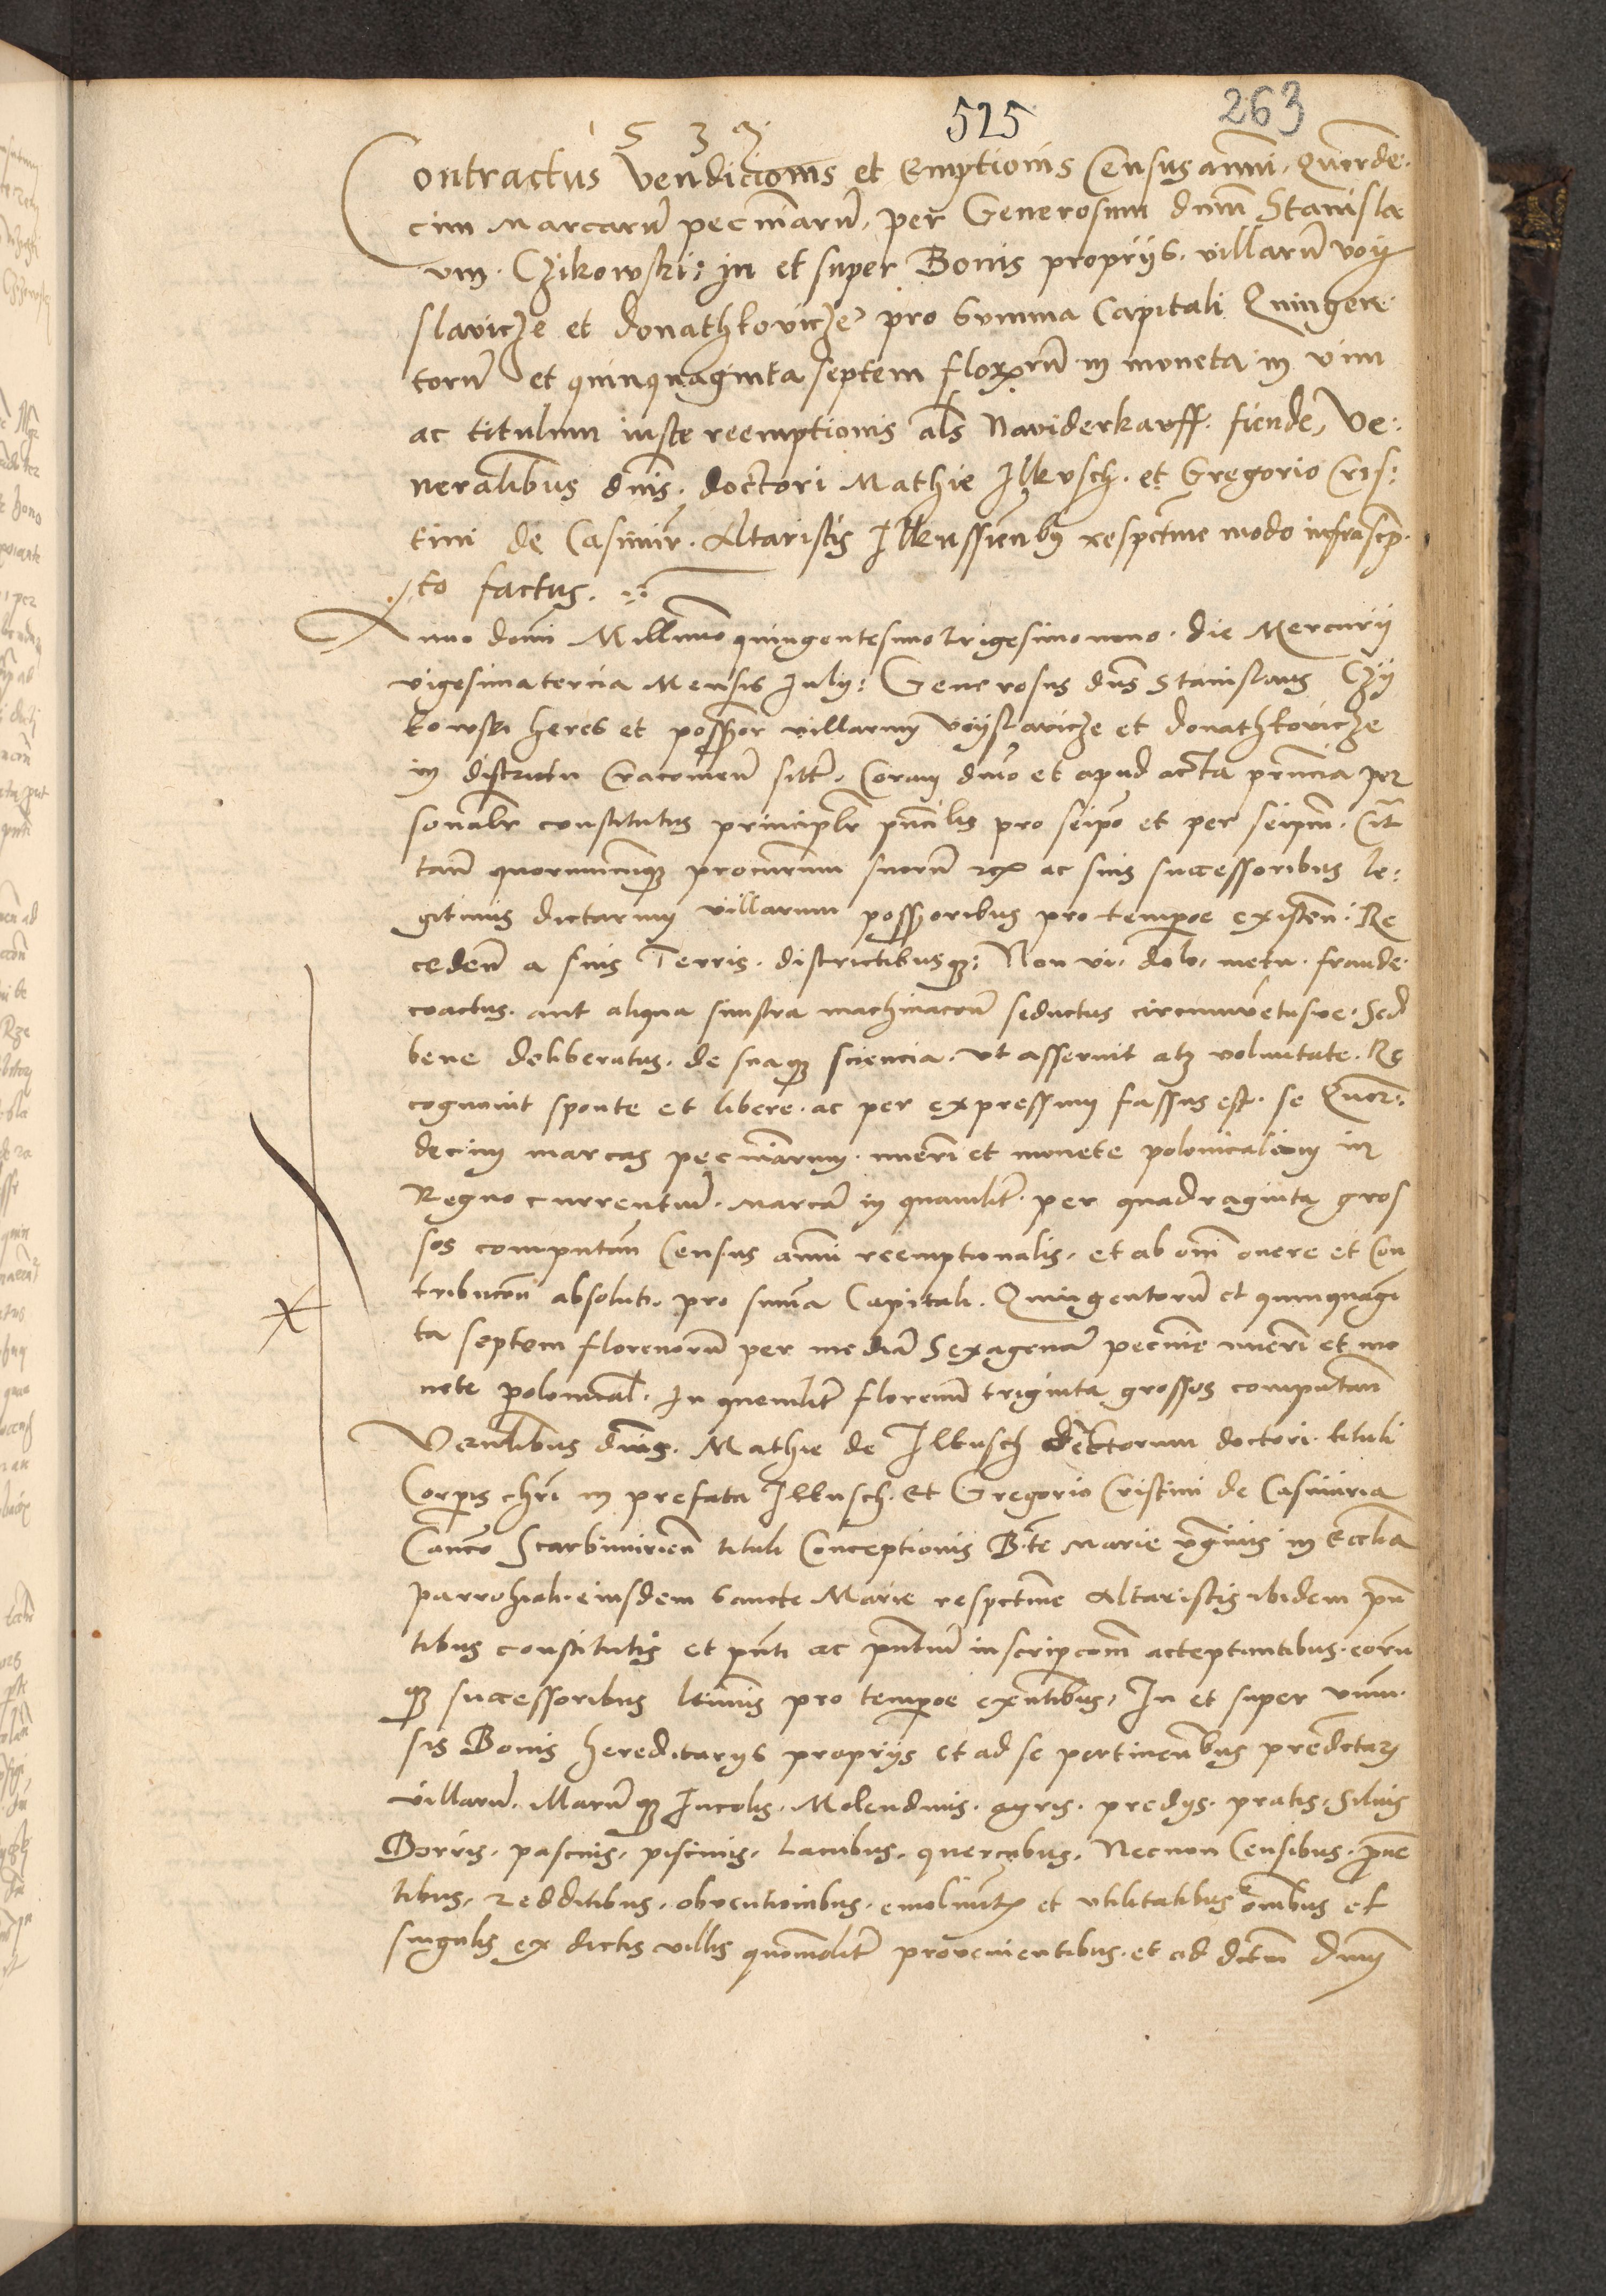 263
525
1539
Contractus Vendicioms et Emptionis Census annui. Quorde.
cim Marcarū pecuniarū. per Generosum dnm̄ Stanisla
um. Czikowski: in et super Bonis proprijs. villarū voy
slavicze et donathkovicze pro Summa Capitali Quingen
torū et quinquaginta septem floren̄rū in moneta in vim
ac titulum iuste reemptionis als Naviderkauff. fiende, Ve:
neralibus dnis. doctori Mathie Ilkusch. et Gregorio Cris:
tini de Casimir. Altaristis Ilkussien̄bus respective modo infrascrip̄
to factus.
Anno domi Millimo quingentesimo trigesimo nono. die Mercurij
vigesimatercia Mensis July: Generosus dns Stanislaus Czy
kowski heres et possessor villarum Voyslavicze et donathkovicze
in districtu Cracovien̄ sitar. Coram dnio et apud acta pn̄cia per
sonalr constitutus principalr pn̄cibs pro seipso et per seipm̄. Cit
tan̄ quorumcunque procurrum suorū ac suis successoribus le:
gitimis dictarum villarum possessoribus pro tempore existen̄: Re
ceden̄ a suis Terris. districtibusque: Non vi. dolo. metu. fraude.
coactus. aut aliqua sinistra machinacon̄ seductus circumventusve. Sed
bene deliberatus. de suaque sciencia. ut asseruit atq voluntate. Re
cognovit sponte et libere. ac per expressum fassus est. se Quor:
decim marcas pecuniarum. numeri et monete polonicalium in
Regno currentiū. Marcā in quamlibet. per quadraginta gros
sos computan̄ Census annui reemptionalis. et ab omi onere et Con
tribucon̄ absoluti. pro suma Capitali. Quingentorū et quinquagi
ta septem florenorū per mediā Sexagenā pecunie numeri et mo
nete polonical. In quemlibet florenū triginta grossos computan̄
Venlibus dnis. Mathie de Ilkusch decretorum doctori. tituli
Corpis chri in prefata Ilkusch. Et Gregorio Cristini de Casimiria
Canco Scarbimirien̄ tituli Conceptionis Bte Marie virginis in Ecclia
parrohiali. eiusdem Sancte Marie respective Altaristis ibidem pn̄
tibus constitutis et pn̄ti ac pn̄tium inscripcom̄ acceptantibus. eorū
que successoribus ltimis pro tempore exn̄tibus, In et super univer
sis Bonis hereditarijs proprijs et ad se pertinen̄bus predictarum
villarū. illarūque Incolis. Molendinis. agris. predijs. pratis. Silvis
Borris. pascuis. piscinis. Lacubus. quercubus. Necnon Censibus. proven
tibus, redditibus. obventionibus. emolimentis et utilitatibus omibus et
singulis ex dictis villis quomodolibet provenientibus. et ad dictum dnm̄